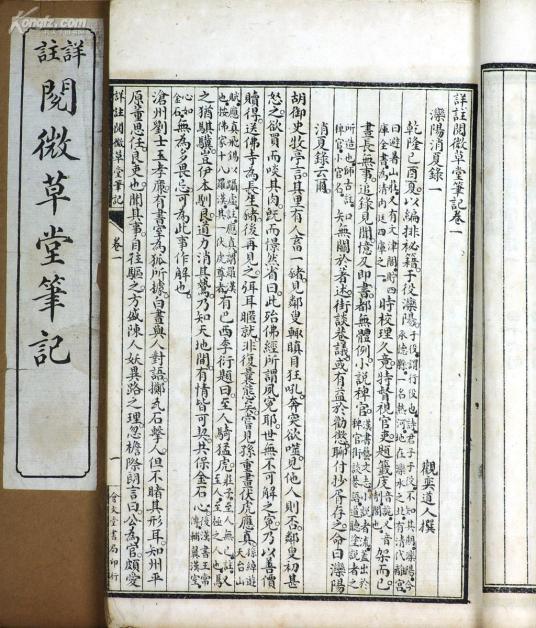 詳註閱微草堂筆記
詳註閱微草堂筆記卷一
灤陽消夏錄一
觀奕道人撰
乾隆己酉夏以編排祕籍于役灤陽于役謂行役也詩君子于役不知其期灤陽今承德縣一名熱河地在灤水之北有清代離宮
曰避暑山莊又有文津閣時校理久竟特督視官吏題籤庋架而已
晝長無事追錄見聞憶及即書都無體例小說稗官知無關於著述街談巷議或有益於勸懲聊付抄胥存之命曰灤陽
消夏錄云爾
胡御史牧亭言其里有人畜一豬見鄰叟輒瞋目狂吼奔突欲噬見他人則否鄰叟初甚
怒之欲買而啖其肉既而憬然省曰此殆佛經所謂夙冤耶世無不可解之冤乃以善價
贖得送佛寺為長生豬後再見之弭耳暱就非復曩態矣嘗見孫重畫伏虎應真
有巴西李衍題曰至人騎猛虎馭
之猶騏驥豈伊本馴良道力消其鷙乃知天地間有情皆可契共保金石心
無為多畏忌可為此事作解也
滄州劉士玉孝廉有書室為狐所據白晝與人對語擲瓦石擊人但不睹其形耳知州平
原董思任良吏也聞其事自往驅之方盛陳人妖異路之理忽檐際朗言曰公為官頗愛
詳註閱微草堂筆記
卷一
一
會文堂書局印行